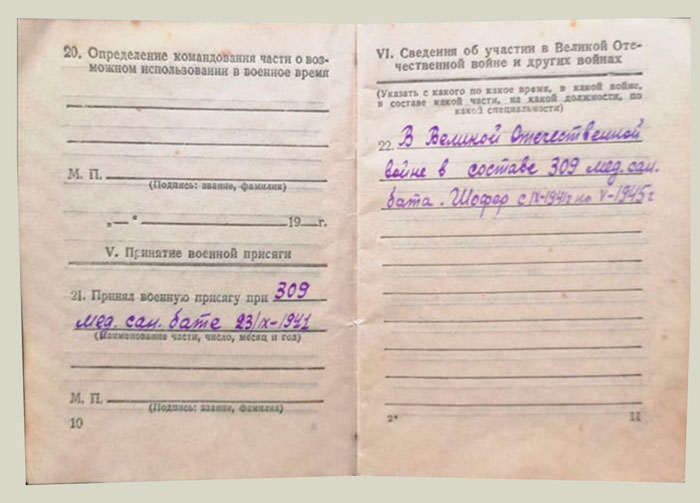 20. Определение командования части о воз-
можном использовании в военное время
М. П.
(Подпись: звание, фамилия)
„—“ 19 г.
V. Принятие военной присяги
21. Принял военную присягу при 309
мед. сан. бате 23/IX-1941
(Наименование части, число, месяц и год)
М. П.
(Подпись: звание, фамилия)
10
VI. Сведения об участии в Великой Оте-
чественной войне и других войнах
(Указать с какого по какое время, в какой войне,
в составе какой части, на какой должности, по
какой специальности)
22. В Великой Отечественной
войне в составе 309 мед. сан.
бата. Шофер с IX-1941г по V-1945г
2*
11